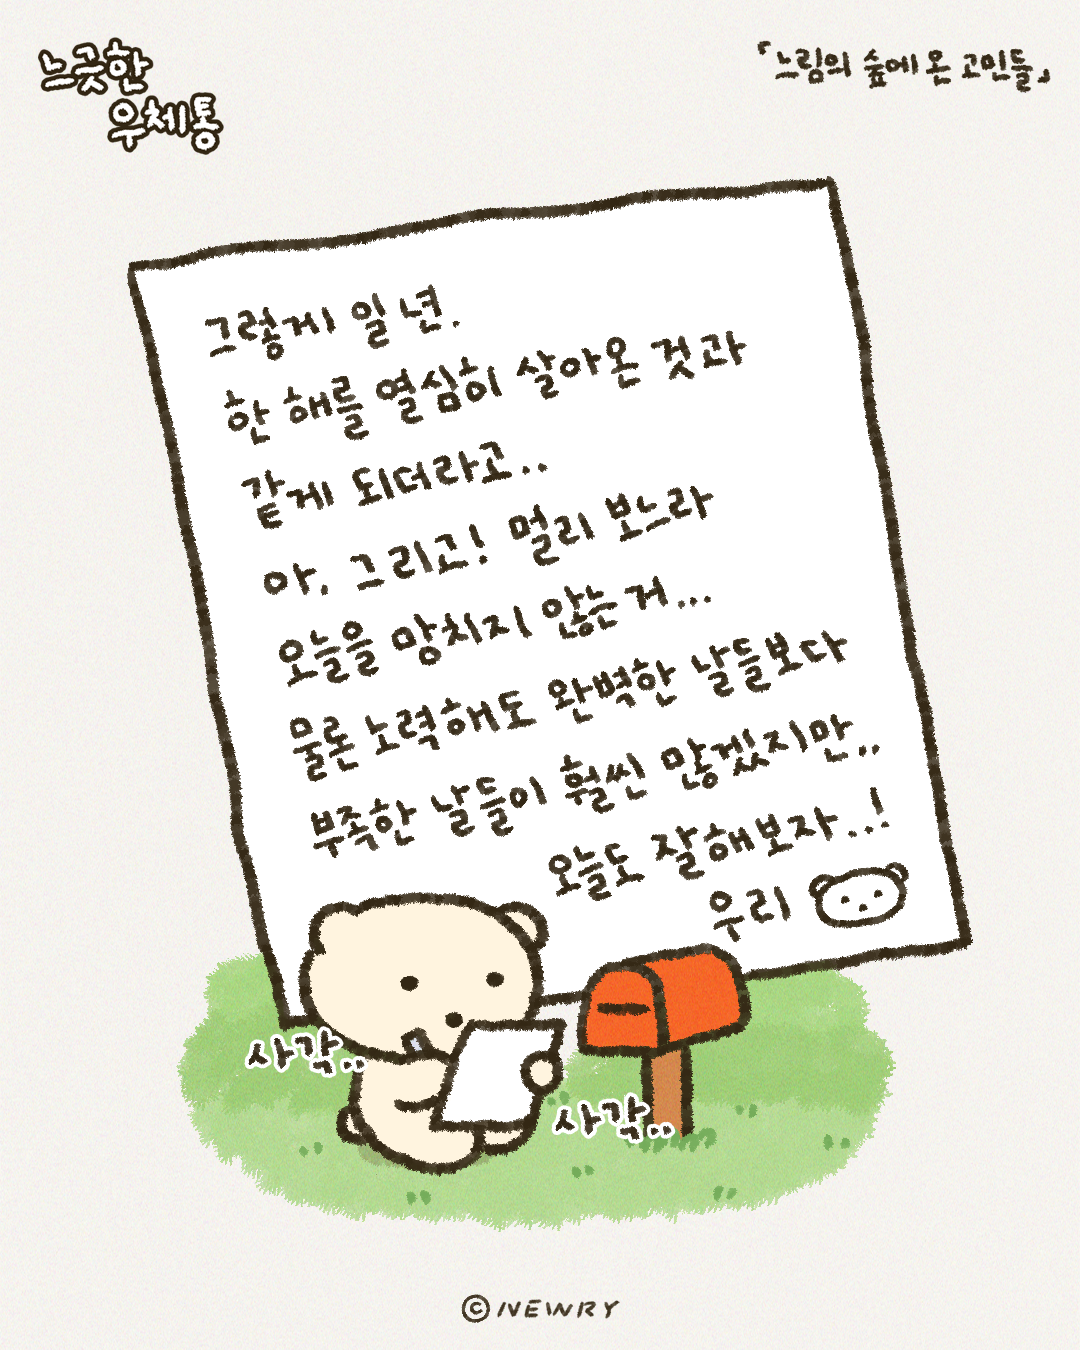 느긋한
우체통
「느림의 숲에 온 고민들」
그렇게 일 년.
한 해를 열심히 살아온 것과
같게 되더라고..
아, 그리고! 멀리 보느라
오늘을 망치지 않는 거...
물론 노력해도 완벽한 날들보다
부족한 날들이 훨씬 많겠지만..
오늘도 잘해보자..!
우리
사각..
사각..
©NEWRY